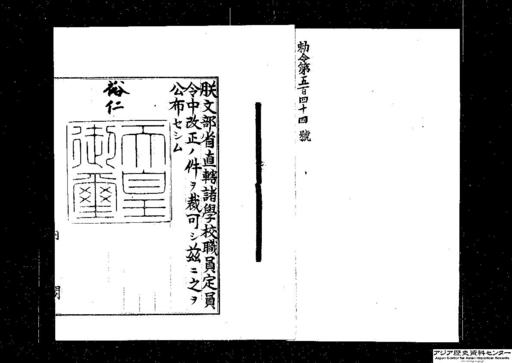 勅令第五百四十四號
朕文部省直轄諸學校職員定員
令中改正ノ件ヲ裁可シ茲ニ之ヲ
公布セシム
裕仁
天皇
御璽
内 閣
アジア歴史資料センター
Japan Center for Asian Historical Records